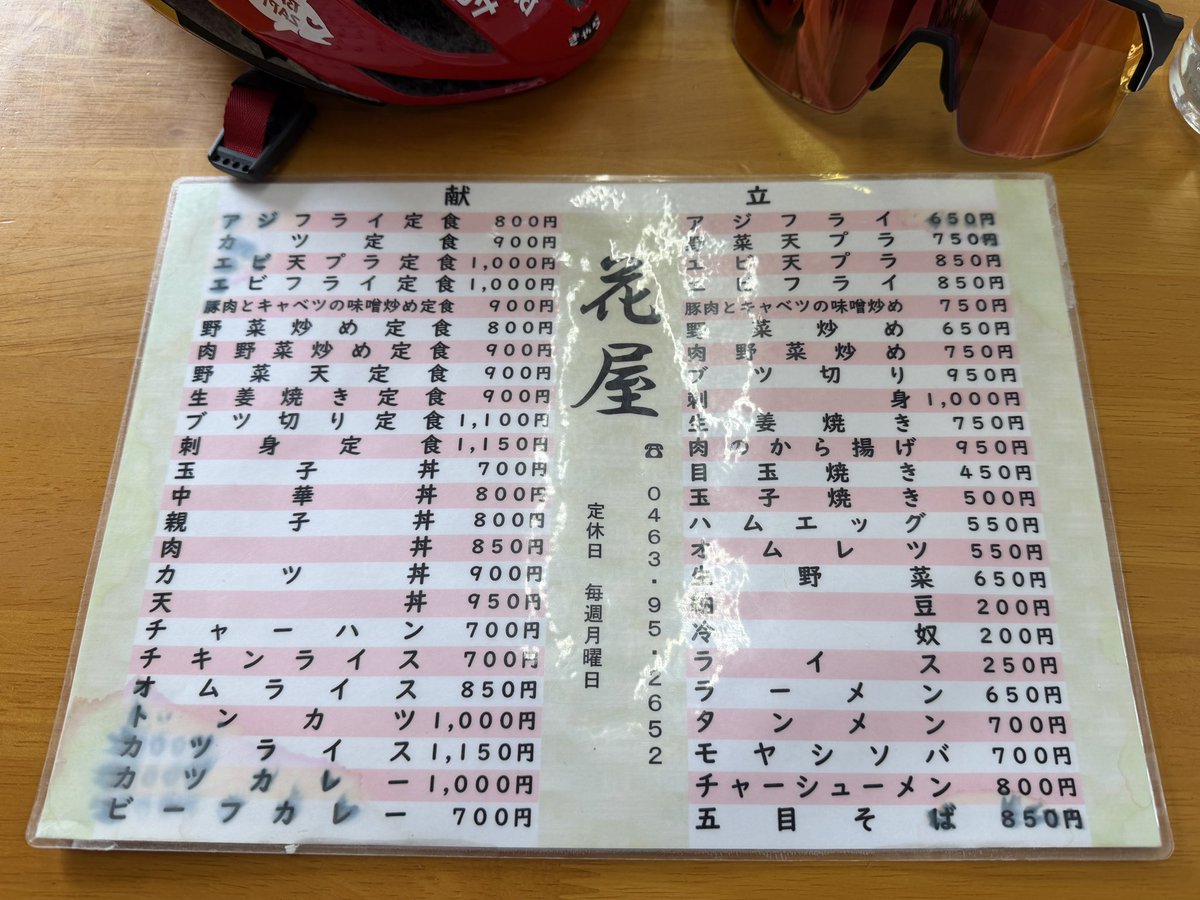 きゃら
献立
アジフライ定食 800円
カツ定食 900円
エビ天プラ定食 1,000円
エビフライ定食 1,000円
豚肉とキャベツの味噌炒め定食 900円
野菜炒め定食 800円
肉野菜炒め定食 900円
野菜天定食 900円
生姜焼き定食 900円
ブツ切り定食 1,100円
刺身定食 1,150円
玉子丼 700円
中華丼 800円
親子丼 800円
肉丼 850円
カツ丼 900円
天丼 950円
チャーハン 700円
チキンライス 700円
オムライス 850円
トンカツ 1,000円
カツライス 1,150円
カツカレー 1,000円
ビーフカレー 700円
花屋
☎0463・95・2652
定休日 毎週月曜日
アジフライ 650円
野菜天プラ 750円
エビ天プラ 850円
エビフライ 850円
豚肉とキャベツの味噌炒め 750円
野菜炒め 650円
肉野菜炒め 750円
ブツ切り 950円
刺身 1,000円
生姜焼き 750円
肉のから揚げ 950円
目玉焼き 450円
玉子焼き 500円
ハムエッグ 550円
オムレツ 550円
生野菜 650円
納豆 200円
冷奴 200円
ライス 250円
ラーメン 650円
タンメン 700円
モヤシソバ 700円
チャーシューメン 800円
五目そば 850円